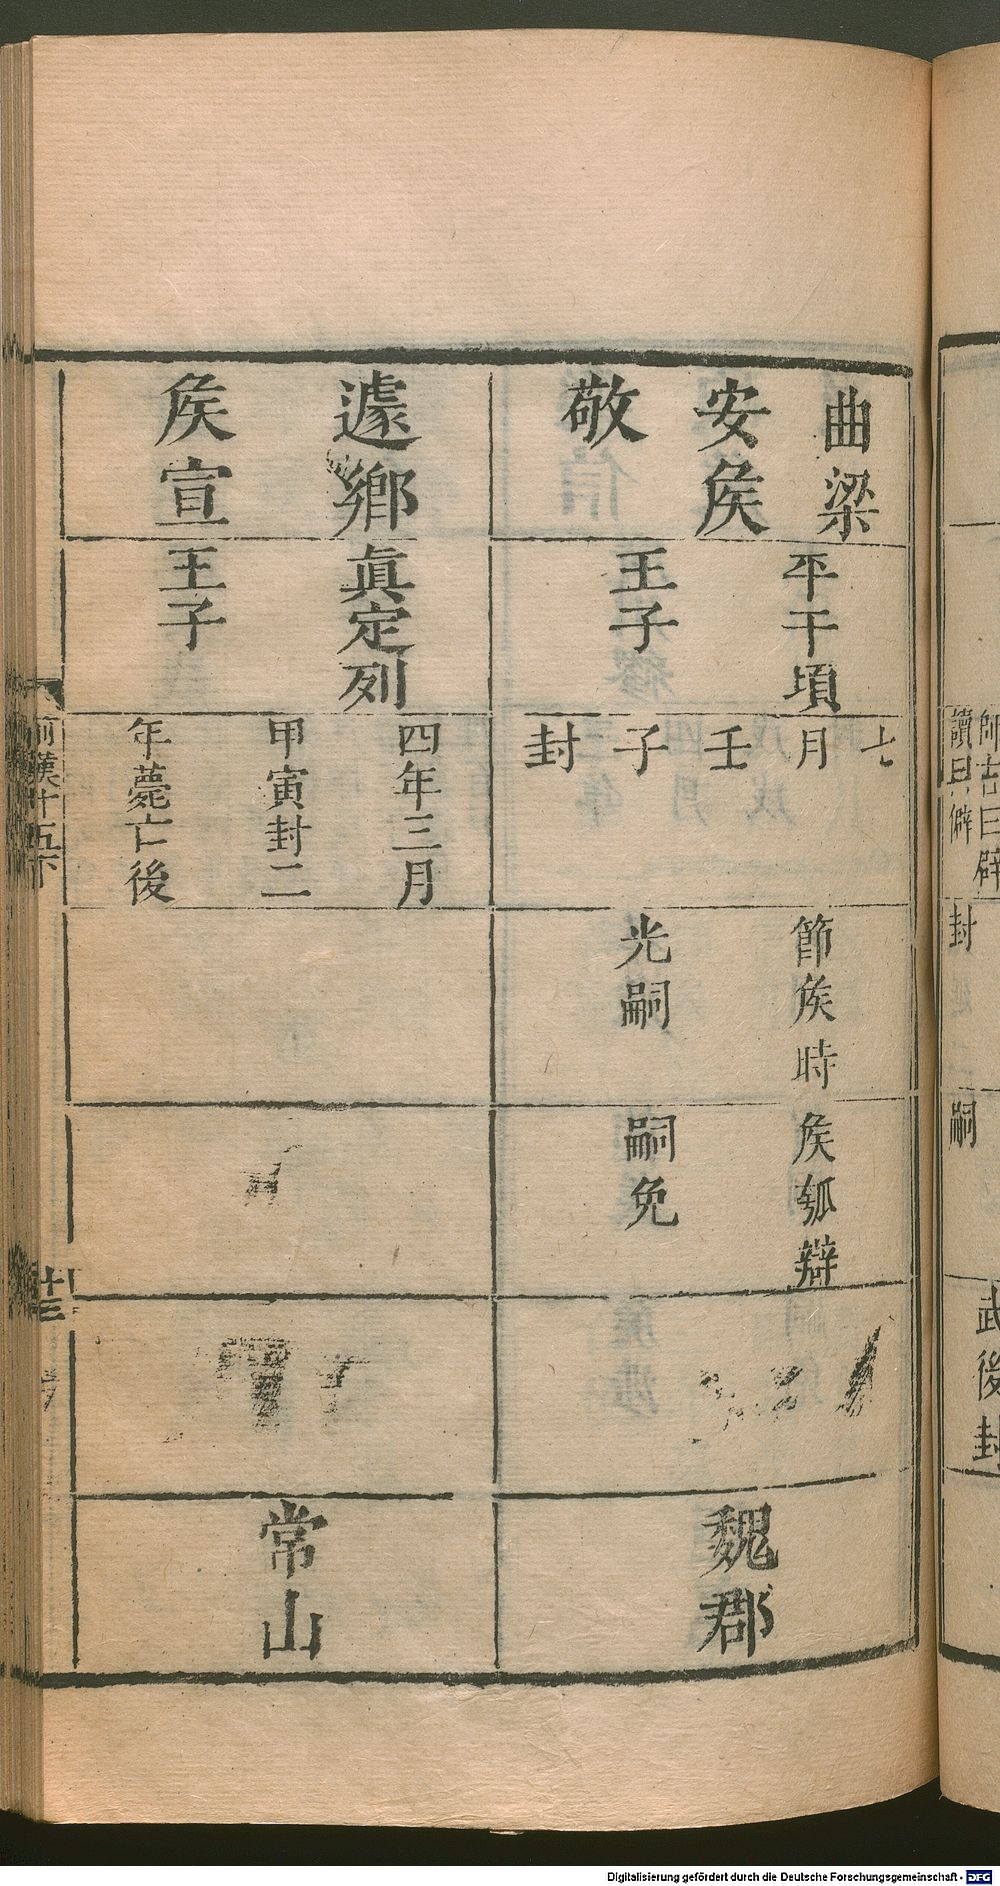 師古曰辟
讀曰僻
封
嗣
武後封
曲梁
安侯
敬
平干頃
王子
七
月
壬
子
封
節侯時
光嗣
侯瓡辯
嗣免
魏郡
遽鄉
侯宣
眞定列
王子
四年三月
甲寅封二
年薨亡後
常山
前漢十五下
十三
Digitalisierung gefördert durch die Deutsche Forschungsgemeinschaft - DFG